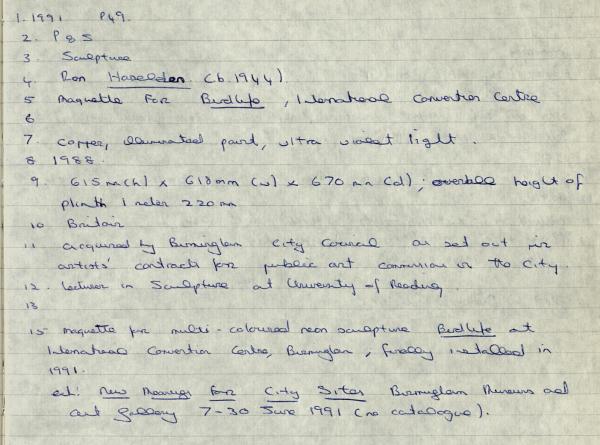 1. 1991 P49.
2. P & S
3 Sculpture
4. Ron Haselden (b.1944).
5 Maquette For Birdlife, International Convention Centre
6
7. Copper, illuminated paint, ultra violet light.
8 1988.
9. 615mm(h) x 618mm (w) x 670mm (d); overall height of
plinth 1 meter 220mm
10 Britain
11 acquired by Birmingham City Council as set out in
artists' contracts for public art commission in the City.
12. Lecturer in Sculpture at University of Reading.
13
15 Maquette for multi-coloured neon sculpture Birdlife at
International Convention Centre, Birmingham, finally installed in
1991.
exh: New Meanings For City Sites Birmingham Museum and
Art Gallery 7-30 June 1991 (no catalogue).